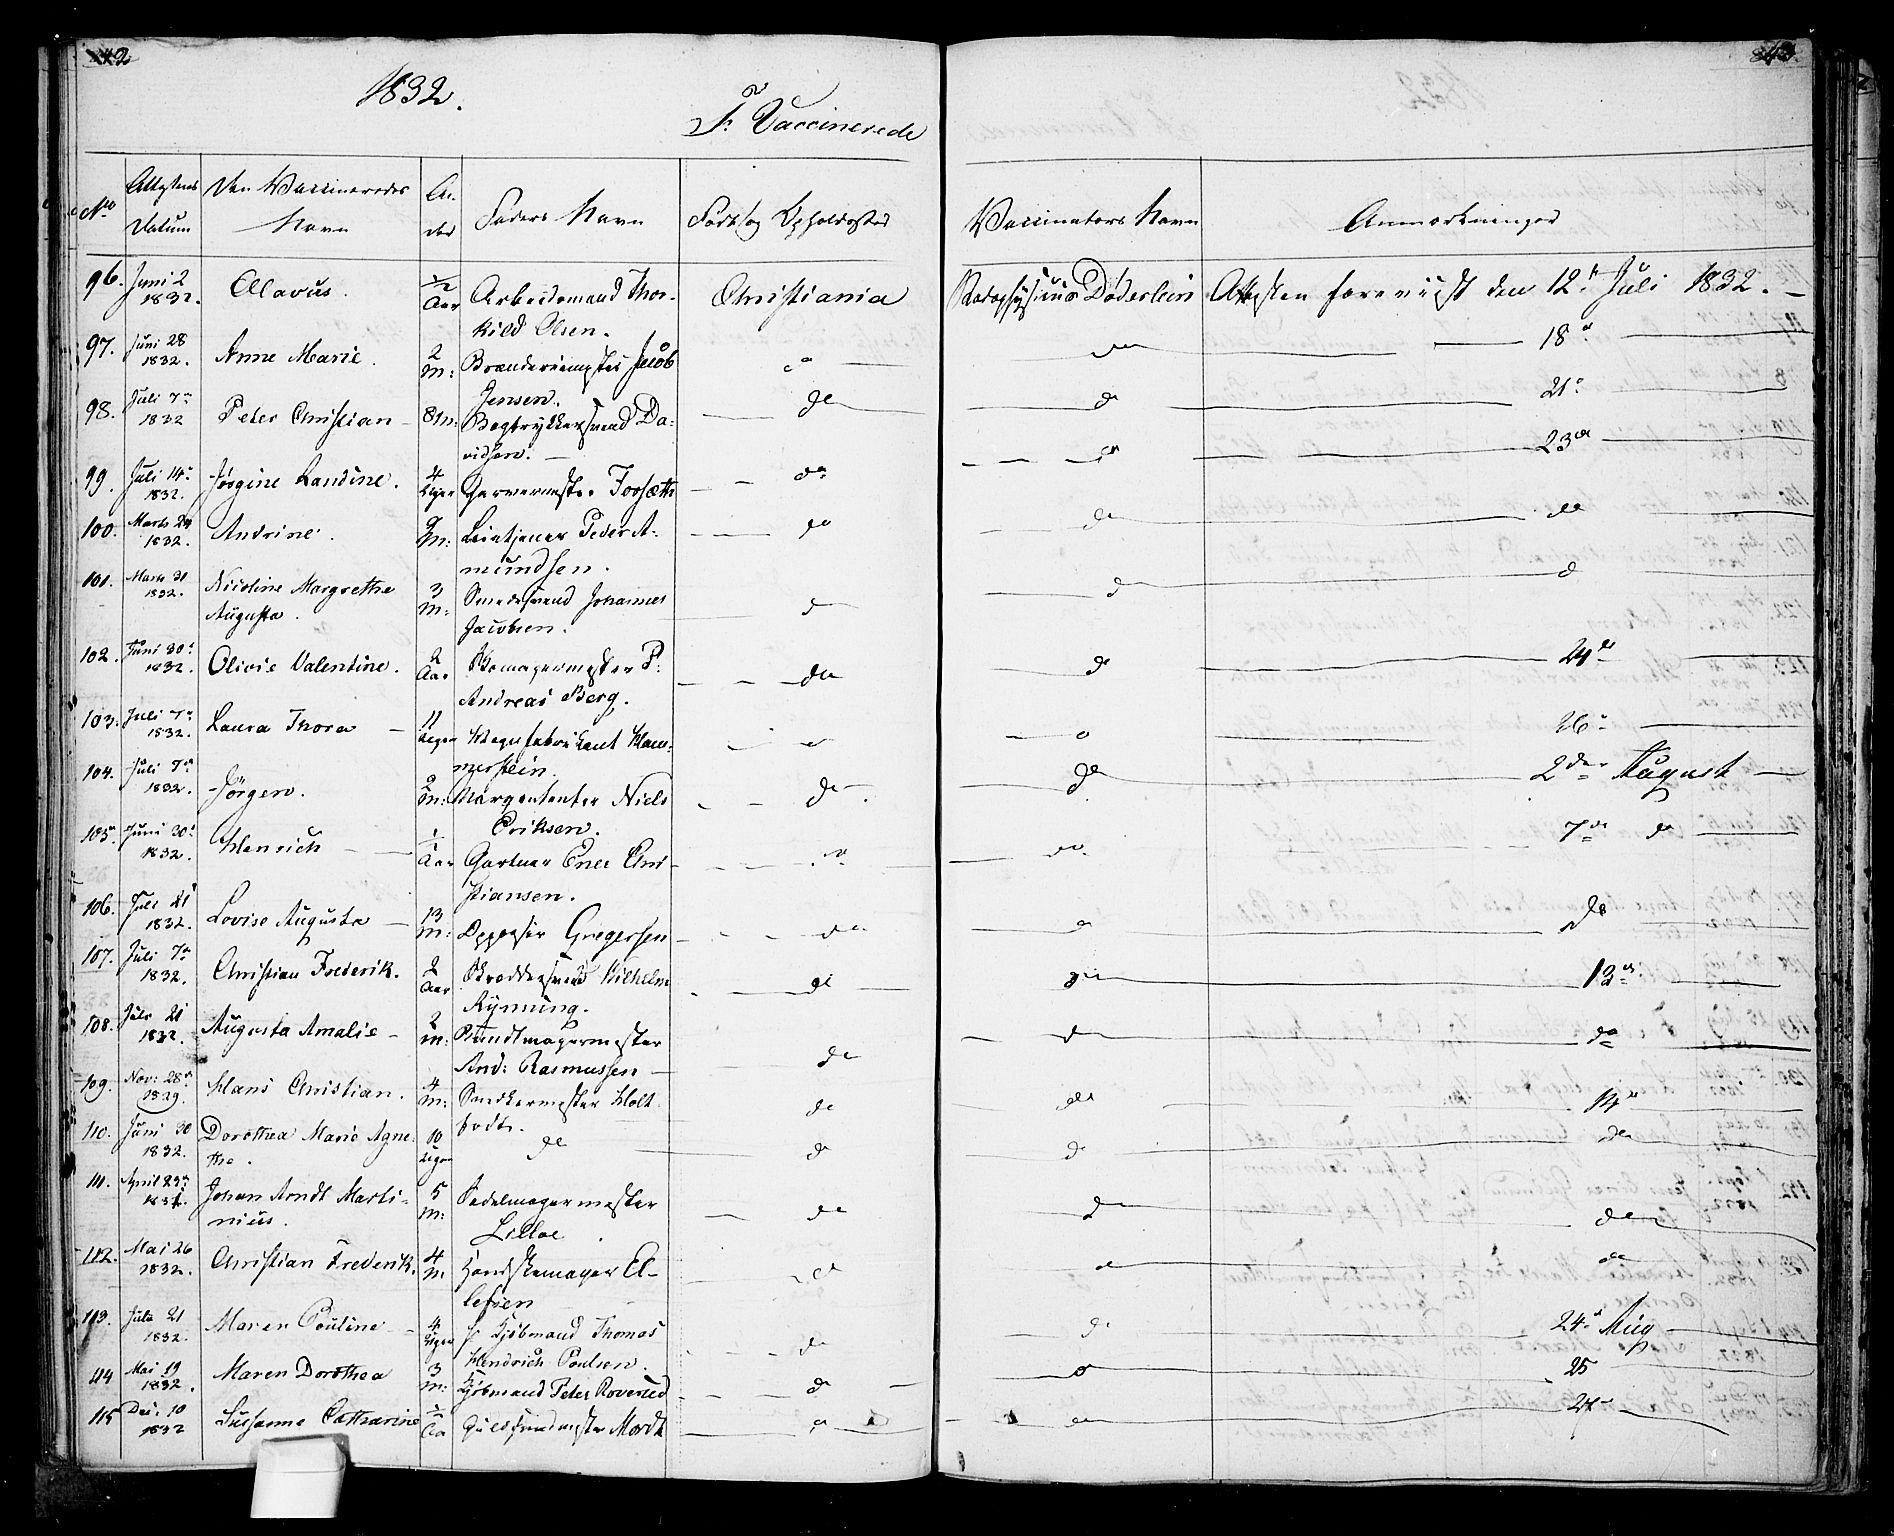 42
1832.
F. Vaccinerede
No
Attestens Datum
Den Vaccineredes Navn
Al-der
Faders Navn
Føde og Opholdssted
Vaccinators Navn
Anmærkninger
96. Juni 2 1832. Olavus. ½ Aar Arbeidsmand Thor-
kild Olsen. Christiania Stadsphysicus Døderlein Attesten foreviist den 12te Juli 1832.
97. Juni 28 1832. Anne Marie. 2 M: Brænderiemester Jacob
Jensen. 18
98. Juli 7 1832 Peter Christian 8 M: Bogtrykkersvend Da-
vidsen. do do 21
99. Juli 14 1832. Jørgine Landine. 4 Uger Garvermester Forsæth do do 23
100. Marts 24 1832. Andrine. 9 M: Leietjener Peder A-
mundsen. do do do
101. Marts 31 1832. Nicoline Margrethe
Augusta. 3 M: Smedesvend Johannes
Jacobsen. do do d
102. Juni 30 1832. Olivie Valentine. 2 Aar Skomagermester P.
Andreas Berg. do do 24
103. Juli 7 1832. Laura Thora 11 Uger Vognfabrikant Ham-
merstein. 26
104. Juli 7 1832. Jørgen. 2 M: Marqententer Niels
Eriksen. do do 2den August
105. Juni 30 1832. Henrich 1 Aar Gartner Ener Chri-
stiansen. do do 7de do
106. Juli 21 1832. Lovise Augusta 13 M: Oppasser Gregersen do do
107. Juli 7 1832. Christian Frederik. 2 Aar Skreddersvend Vilhelm
Rynning. do do 13
108. Juli 21 1832. Augusta Amalie 2 M: Buntmagermester
And: Rasmussen do do do
109. Nov: 28 1829. Hans Christian. 4 M: Snedkermester Holt-
fodt. do do 14
110. Juni 30 1832. Dorothea Marie Agne-
the. 10 Uger do do do do
111. April 23 1831. Johan Arndt Marti-
nius. 5 M: Sadelmagermester
Lilloe do do do
112. Mai 26 1832. Christian Frederik. 4 M Handskemager El-
lefsen do do do
113. Juli 21 1832. Maren Pouline 4 Uger Kjøbmand Thomas
Hendrich Poulsen. do do 24 Aug
114 Mai 19 1832. Maren Dorothea 3 M: Kjøbmand Peter Roversted do 25
115 Dec. 10 1832 Susanne Catharine ½ Aa Guldsmedmester Mordt 27